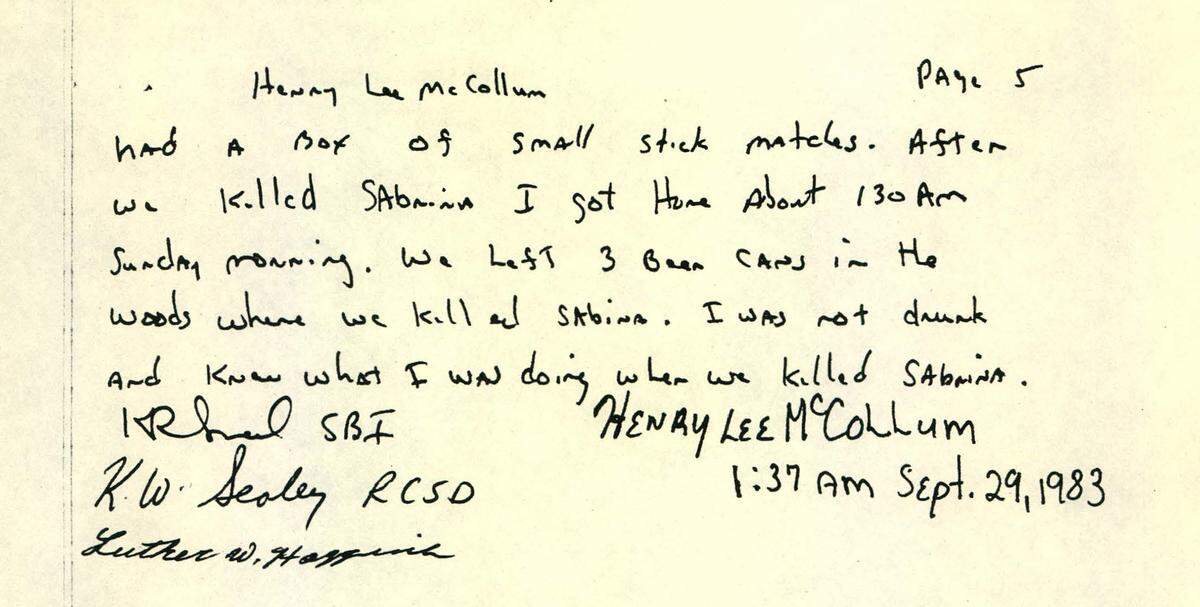 Henry Lee McCollum PAge 5
had A Box of small stick matches. After
we killed SAbrina I got Home About 130 Am
Sunday morning. We Left 3 Beer cans in the
woods where we killed SAbina. I was not drunk
and knew what I was doing when we killed SAbrina.
SBI HENRY LEE McCOLLUM
K.W. Sealey RCSD 1:37 AM Sept. 29, 1983
Luther W.